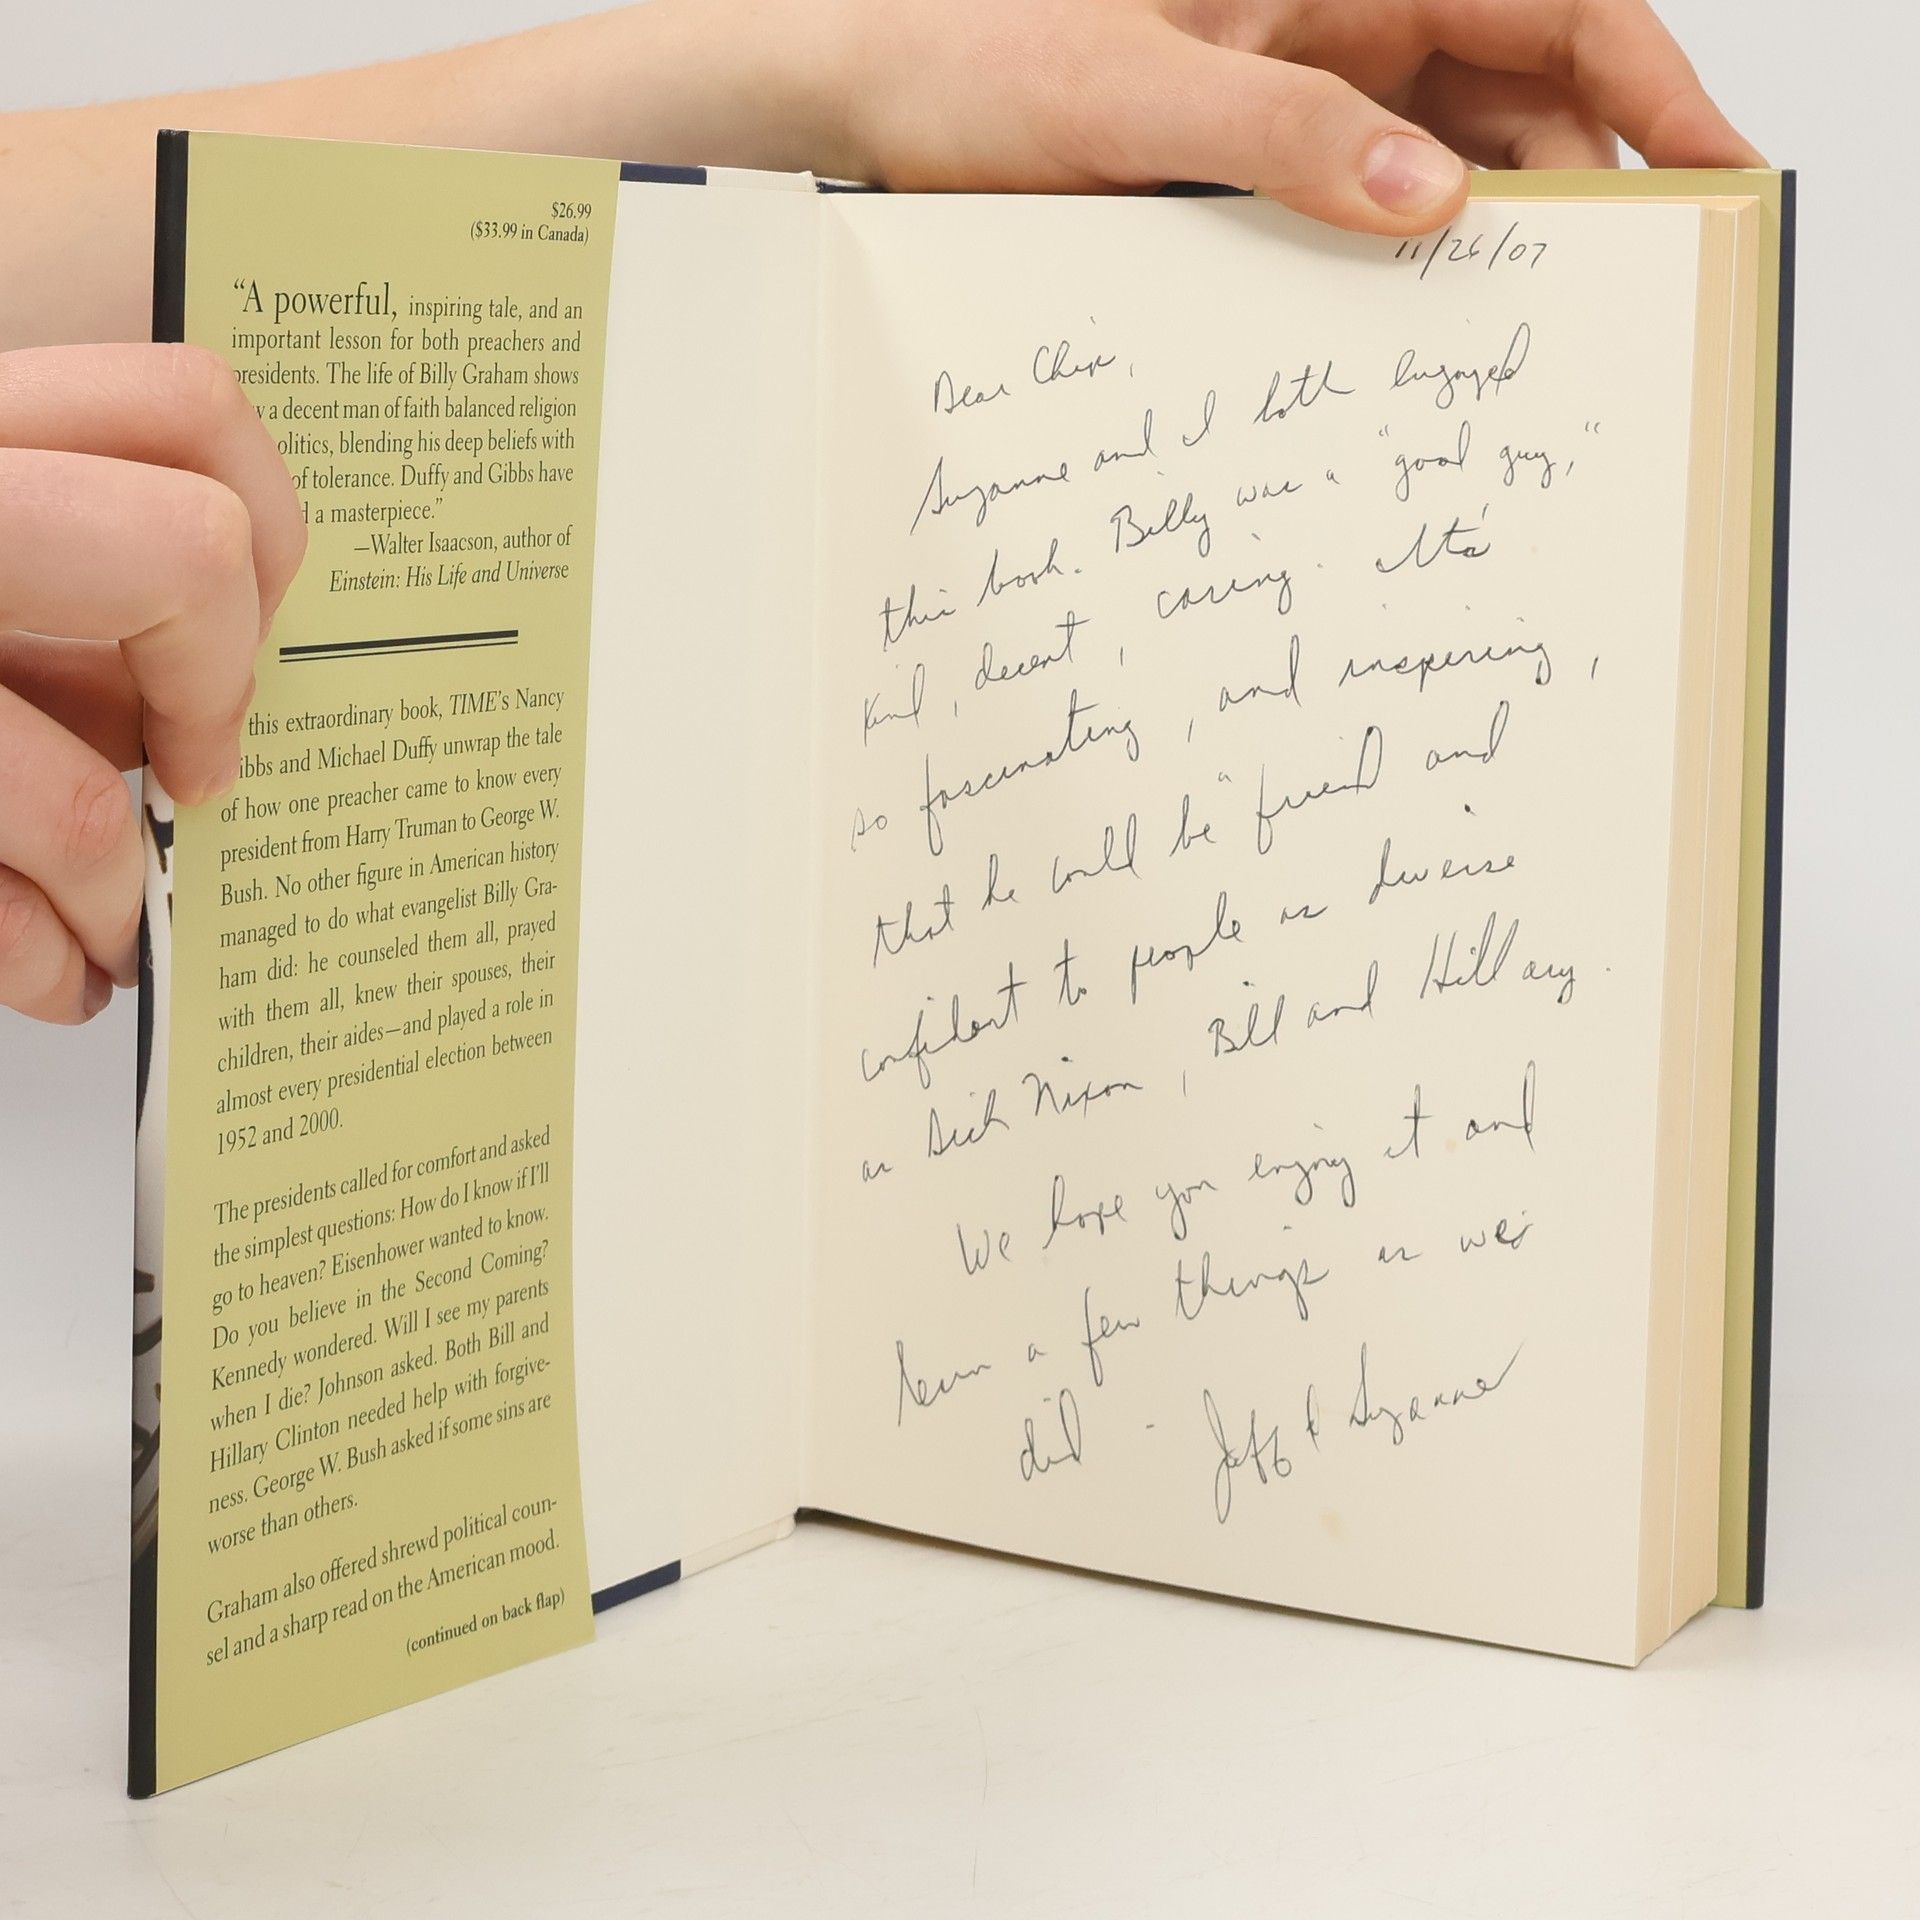 $26.99
($33.99 in Canada)
“A powerful, inspiring tale, and an
important lesson for both preachers and
presidents. The life of Billy Graham shows
a decent man of faith balanced religion
olitics, blending his deep beliefs with
of tolerance. Duffy and Gibbs have
a masterpiece.”
—Walter Isaacson, author of
Einstein: His Life and Universe
this extraordinary book, TIME’s Nancy
ibbs and Michael Duffy unwrap the tale
of how one preacher came to know every
president from Harry Truman to George W.
Bush. No other figure in American history
managed to do what evangelist Billy Gra-
ham did: he counseled them all, prayed
with them all, knew their spouses, their
children, their aides—and played a role in
almost every presidential election between
1952 and 2000.
The presidents called for comfort and asked
the simplest questions: How do I know if I’ll
go to heaven? Eisenhower wanted to know.
Do you believe in the Second Coming?
Kennedy wondered. Will I see my parents
when I die? Johnson asked. Both Bill and
Hillary Clinton needed help with forgive-
ness. George W. Bush asked if some sins are
worse than others.
Graham also offered shrewd political coun-
sel and a sharp read on the American mood.
(continued on back flap)
11/26/07
Dear
Suzanne and I both enjoyed
this book. Billy was a “good guy,”
kind, decent, caring. It's
so fascinating, and inspiring,
that he could be “friend and
confidant to people as diverse
as Dick Nixon, Bill and Hillary.
We hope you enjoy it and
learn a few things as we
did - Jeff & Suzanne